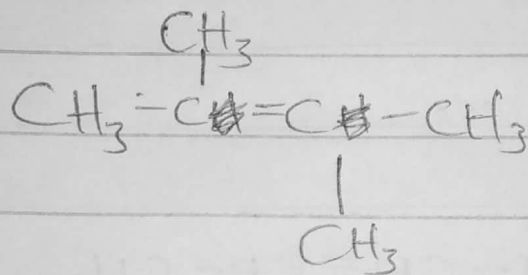 CH3
CH3-C=C-CH3
CH3